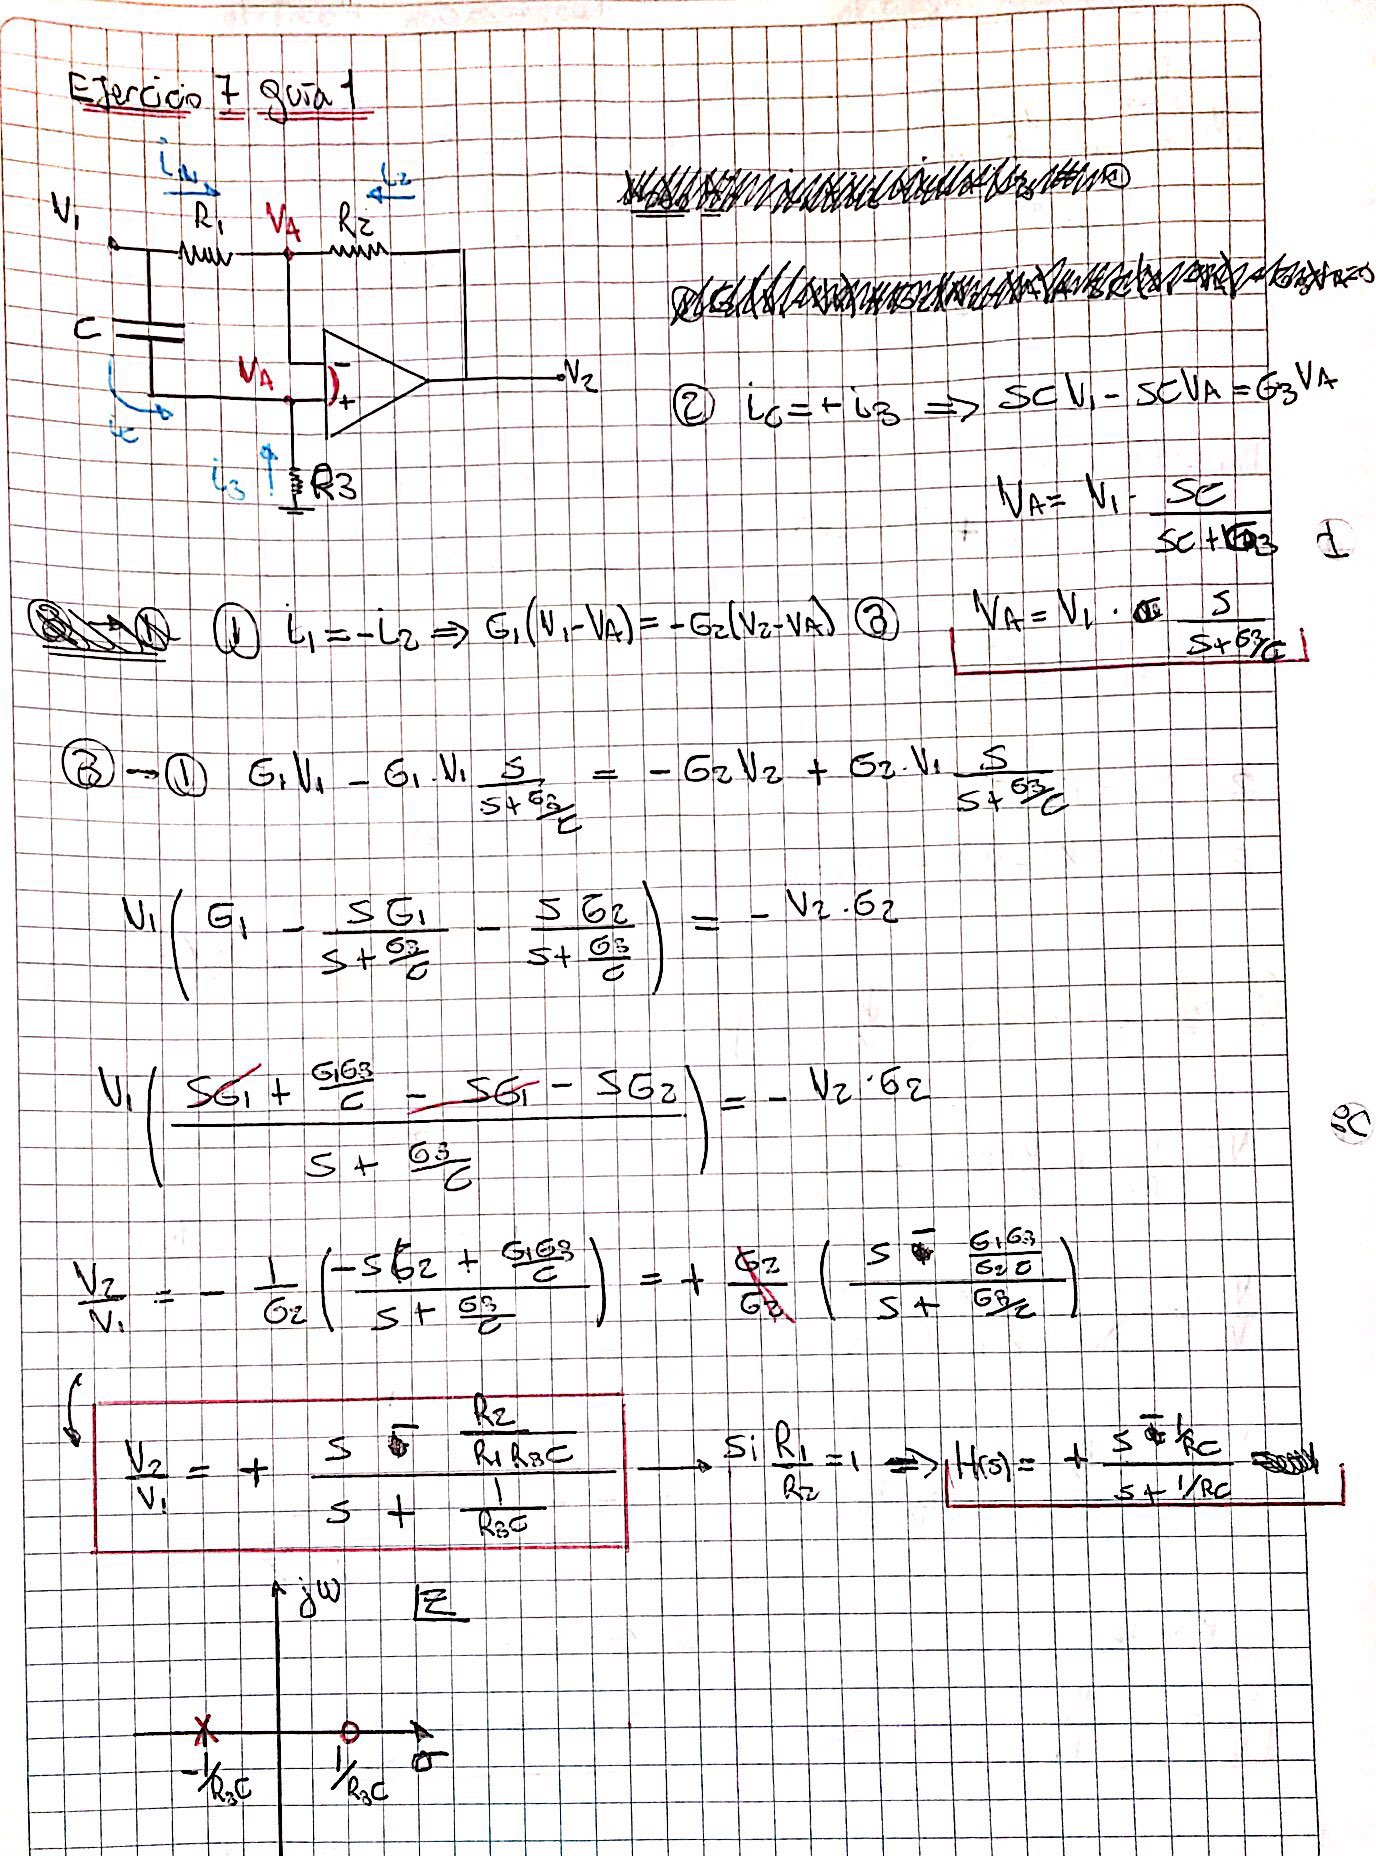 Ejercicio 7 guía 1
i1 i2
V1 R1 VA R2
C VA - + V2
ic
i3 R3
② ic = + i3 ⇒ SC V1 - SC VA = G3 VA
VA = V1 · SC / (SC + G3)
① i1 = -i2 ⇒ G1(V1-VA) = -G2(V2-VA) ③ VA = V1 · S / (S + G3/C)
③ → ① G1 V1 - G1 · V1 S / (S + G3/C) = - G2 V2 + G2 · V1 S / (S + G3/C)
V1 ( G1 - S G1 / (S + G3/C) - S G2 / (S + G3/C) ) = - V2 · G2
V1 ( (SG1 + G1G3/C - SG1 - SG2) / (S + G3/C) ) = - V2 · G2
V2/V1 = - 1/G2 ( (-SG2 + G1G3/C) / (S + G3/C) ) = + G2/G2 ( (S - G1G3/G2C) / (S + G3/C) )
V2/V1 = + (S - R2/R1R3C) / (S + 1/R3C) → Si R1/R2 = 1 ⇒ H(s) = + (S - 1/RC) / (S + 1/RC)
jω
σ
-1/R3C 1/R3C